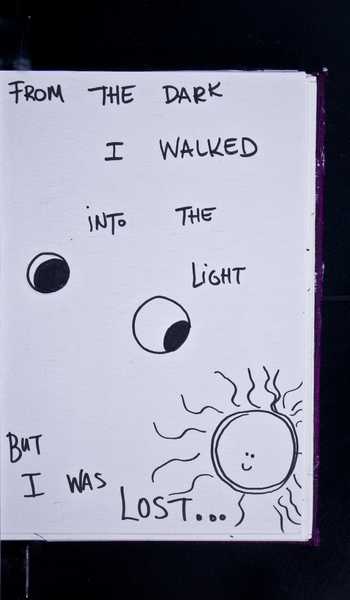 FROM THE DARK
I WALKED
iNTO THE
LiGHT
BUT
I WAS
LOST...